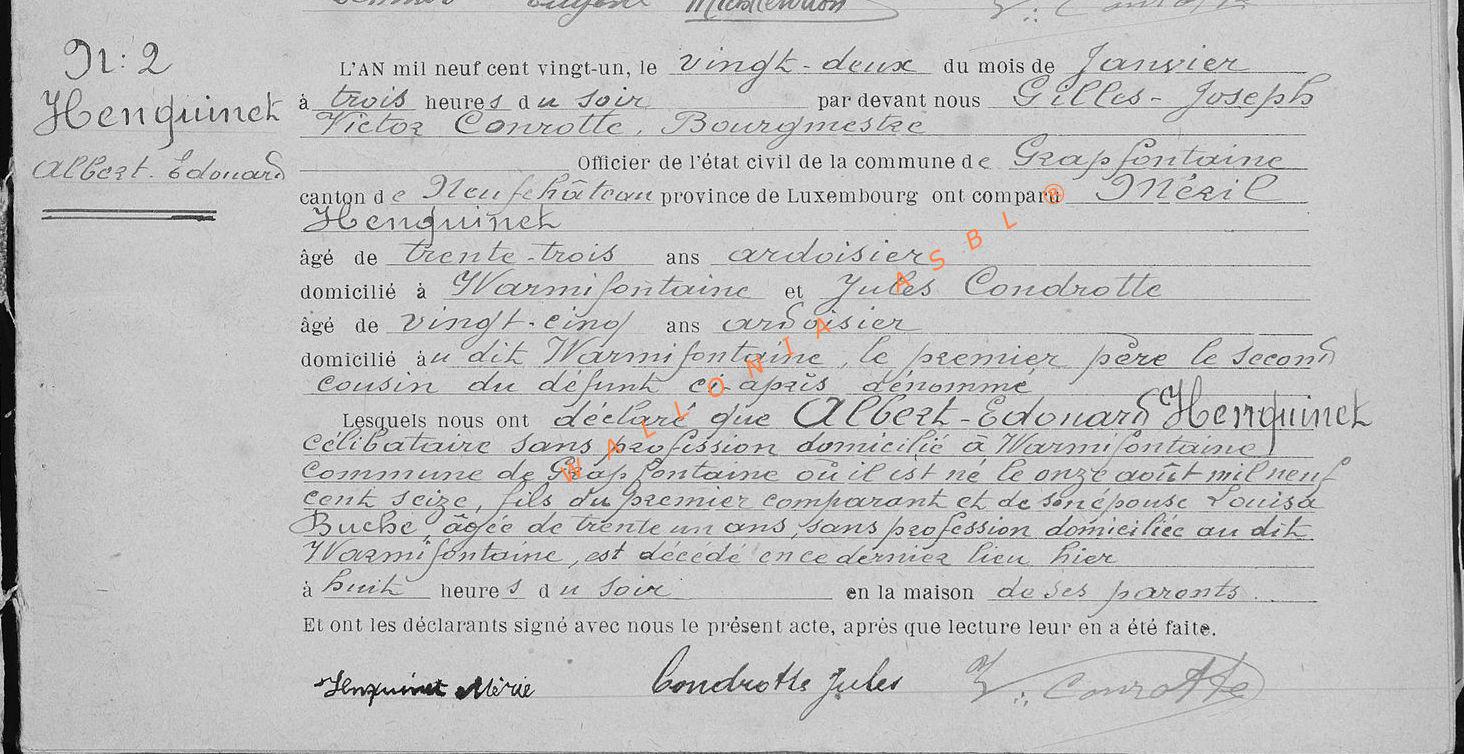 N: 2
Henquinet
Albert-Edouard
L'AN mil neuf cent vingt-un, le vingt-deux du mois de Janvier
à trois heures du soir par devant nous Gilles-Joseph
Victor Conrotte, Bourgmestre
Officier de l'état civil de la commune de Grapfontaine
canton de Neufchâteau province de Luxembourg ont comparu Méril
Henquinet
âgé de trente-trois ans ardoisier
domicilié à Warmifontaine et Jules Condrotte
âgé de vingt-cinq ans ardoisier
domicilié au dit Warmifontaine, le premier père le second
cousin du défunt ci-après dénommé
Lesquels nous ont déclaré que Albert-Edouard Henquinet
célibataire sans profession domicilié à Warmifontaine
commune de Grapfontaine où il est né le onze août mil neuf
cent seize, fils du premier comparant et de son épouse Louisa
Buche âgée de trente un ans, sans profession domiciliée au dit
Warmifontaine, est décédé en ce dernier lieu hier
à huit heures du soir en la maison de ses parents.
Et ont les déclarants signé avec nous le présent acte, après que lecture leur en a été faite.
Henquinet Condrotte Jules V. Conrotte
WALLONIA ASBL ®